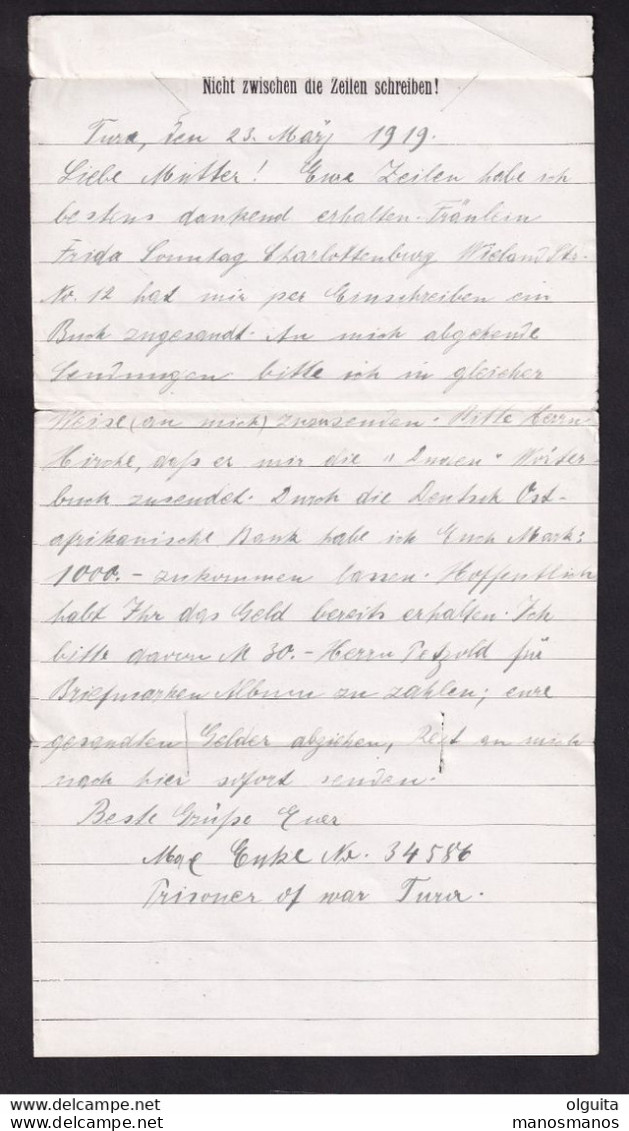 Nicht zwischen die Zeilen schreiben!
Tura, den 23. März 1919.
Liebe Mutter! Eure Zeilen habe ich
bestens dankend erhalten. Fräulein
Frida Sonntag Charlottenburg Wieland Str.
No. 12 hat mir per Einschreiben ein
Buch zugesandt. An mich abgehende
Sendungen bitte ich in gleicher
Weise (an mich) zuzusenden. Bitte Herrn
Hirche, daß er mir die "Duden" Wörter-
buch zusendet. Durch die Deutsch Ost-
afrikanische Bank habe ich Euch Mark:
1000.- zukommen lassen. Hoffentlich
habt Ihr das Geld bereits erhalten. Ich
bitte davon M 30.- Herrn Petzold für
Briefmarken Album zu zahlen; eure
gesandten Gelder abziehen, Rest an mich
nach hier sofort senden.
Beste Grüße Euer
Max Enke No. 34586
Prisoner of war Tura.
olguita
manosmanos